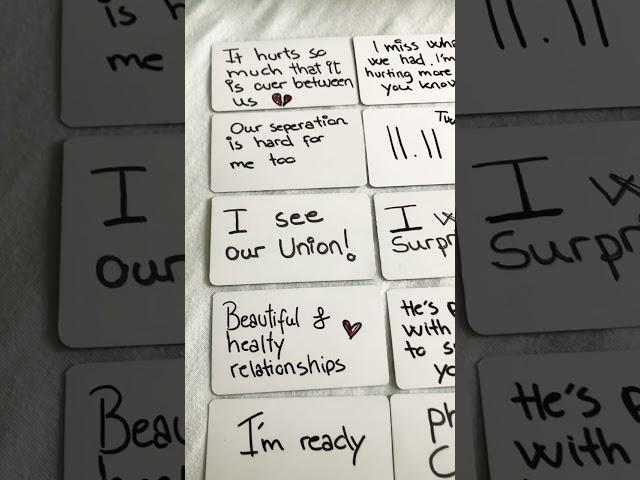 It hurts so
much that it
is over between
us
I miss
we had. I'm
hurting more
you know
Our seperation
is hard for
me too
11.11
I see
our Union!
I
Beautiful &
healty
relationships
He's
with
to
I'm ready
is
me
11.11
I
our
I
He's
with